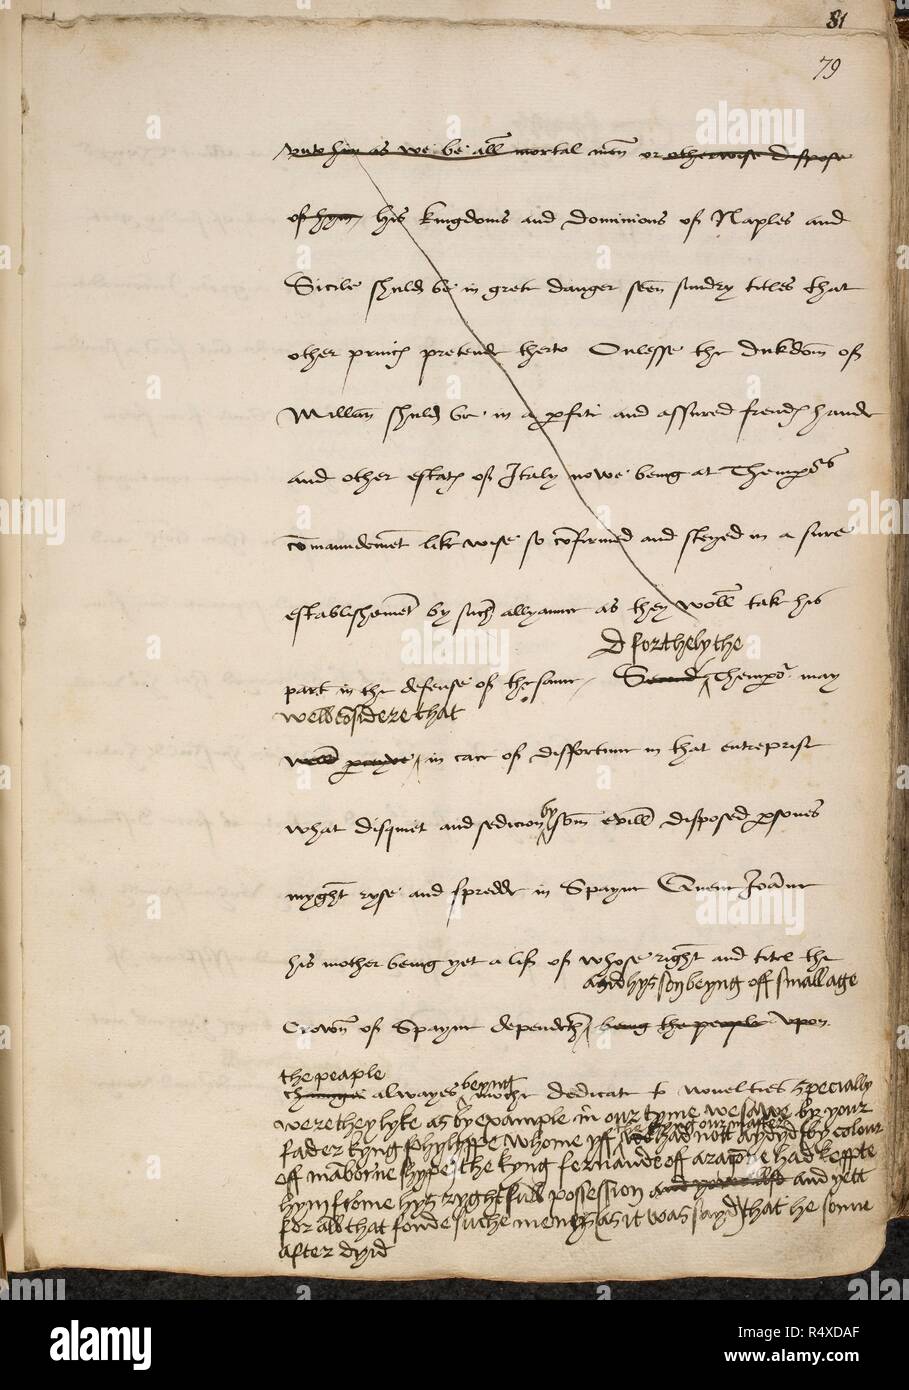 81
79
unto hym as we be all mortal men or otherwise dispose
of hym, his kingdoms and dominions of Naples and
Sicile shuld be in grete danger seen sundry titles that
other princes pretende therto Onlesse the dukdom of
Millan shuld be in a perfite and assured frendes hande
and other estates of Italy nowe being at Themperors
comaundement likewise so confirmed and steyed in a sure
establishement by such allyaunce as they woll tak his
D forthely the
part in the defense of the same, Second Themperor may
well considere that
well perceyve, in cace of disfortune in that entreprise
by
what disquiet and sedicion som evill disposed persones
myght ryse and spredde in Spayne Quene Joanne
his mother being yet a lif of whose right and title the
and hys son beyng off small age
Crown of Spayne dependeth being the people upon
the peaple
beyng
alwayes moche dedicat to novelties specially
were they lyke as by example in our tyme we sawe by your
beyng our
fader kyng Phylyppe whome yff we had nott aydyd by colour
off maborne hype the kyng fernande off aragone had keppte
hym frome hys ryght full possession and yett
for all that fonde suche menys (as it was sayd) that he sonne
after dyid
alamy
Image ID: R4XDAF
www.alamy.com